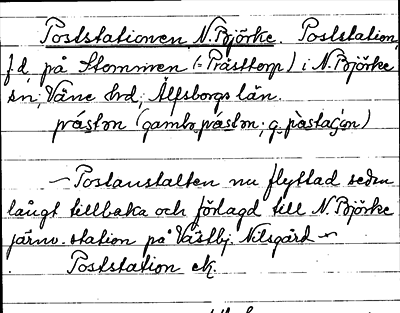 Poststationen N. Björke. Poststation,
f.d. på Stommen (= Prästtorp) i N. Björke
sn, Väne hd, Älfsborgs län.
(gambo
— Postanstalten nu flyttad sedan
långt tillbaka och förlagd till N. Björke
järnv. station på Västbj. Nilsgård —
Poststation ek.